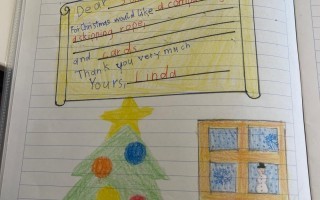 Dear
For Christmas would like a
a skipping rope,
and cards
Thank you very much
Yours, Linda